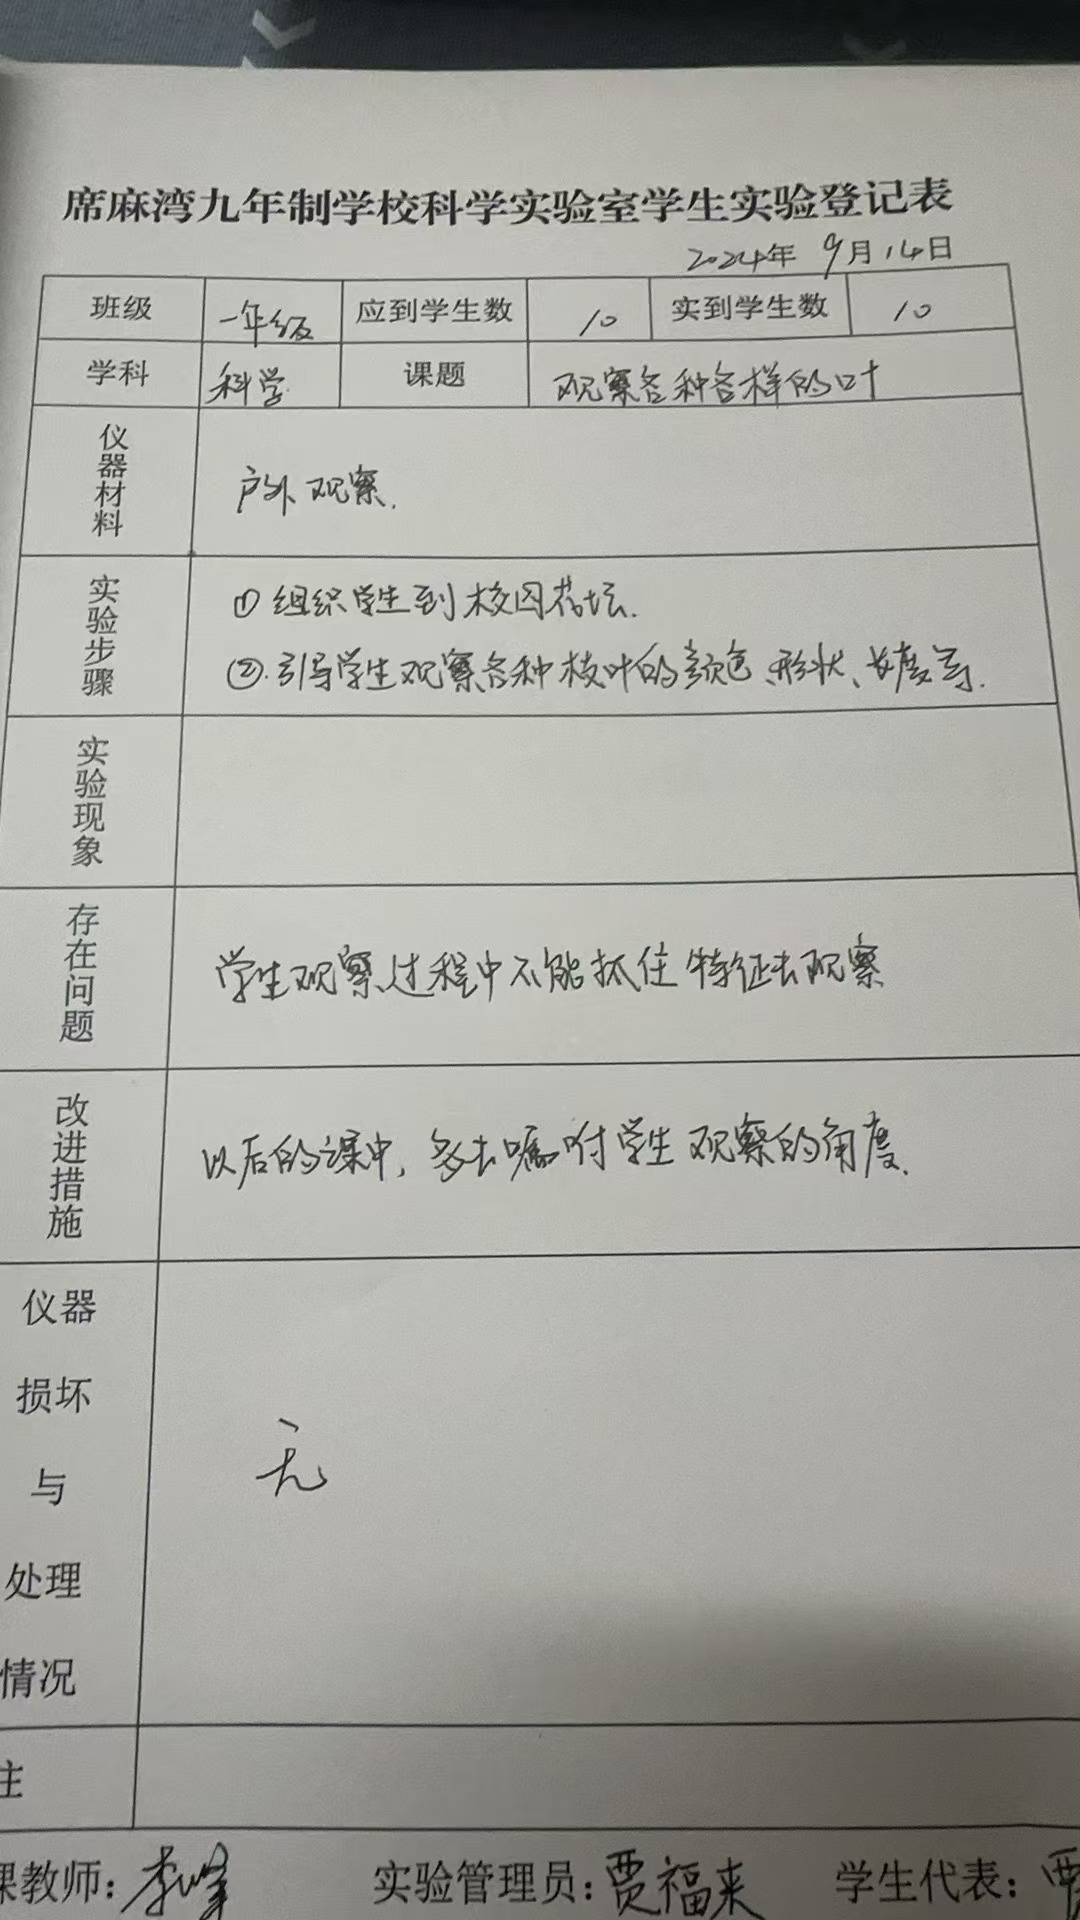 席麻湾九年制学校科学实验室学生实验登记表
2024年 9月14日
班级 一年级 应到学生数 10 实到学生数 10
学科 科学 课题 观察各种各样的叶
仪器材料 户外观察.
实验步骤 ①组织学生到校园花坛.
②.引导学生观察各种枝叶的颜色、形状、长度等.
实验现象
存在问题 学生观察过程中不能抓住特征去观察
改进措施 以后的课中,多去嘱咐学生观察的角度.
仪器
损坏
与 无
处理
情况
注
课教师: 李 实验管理员:贾福来 学生代表:贾